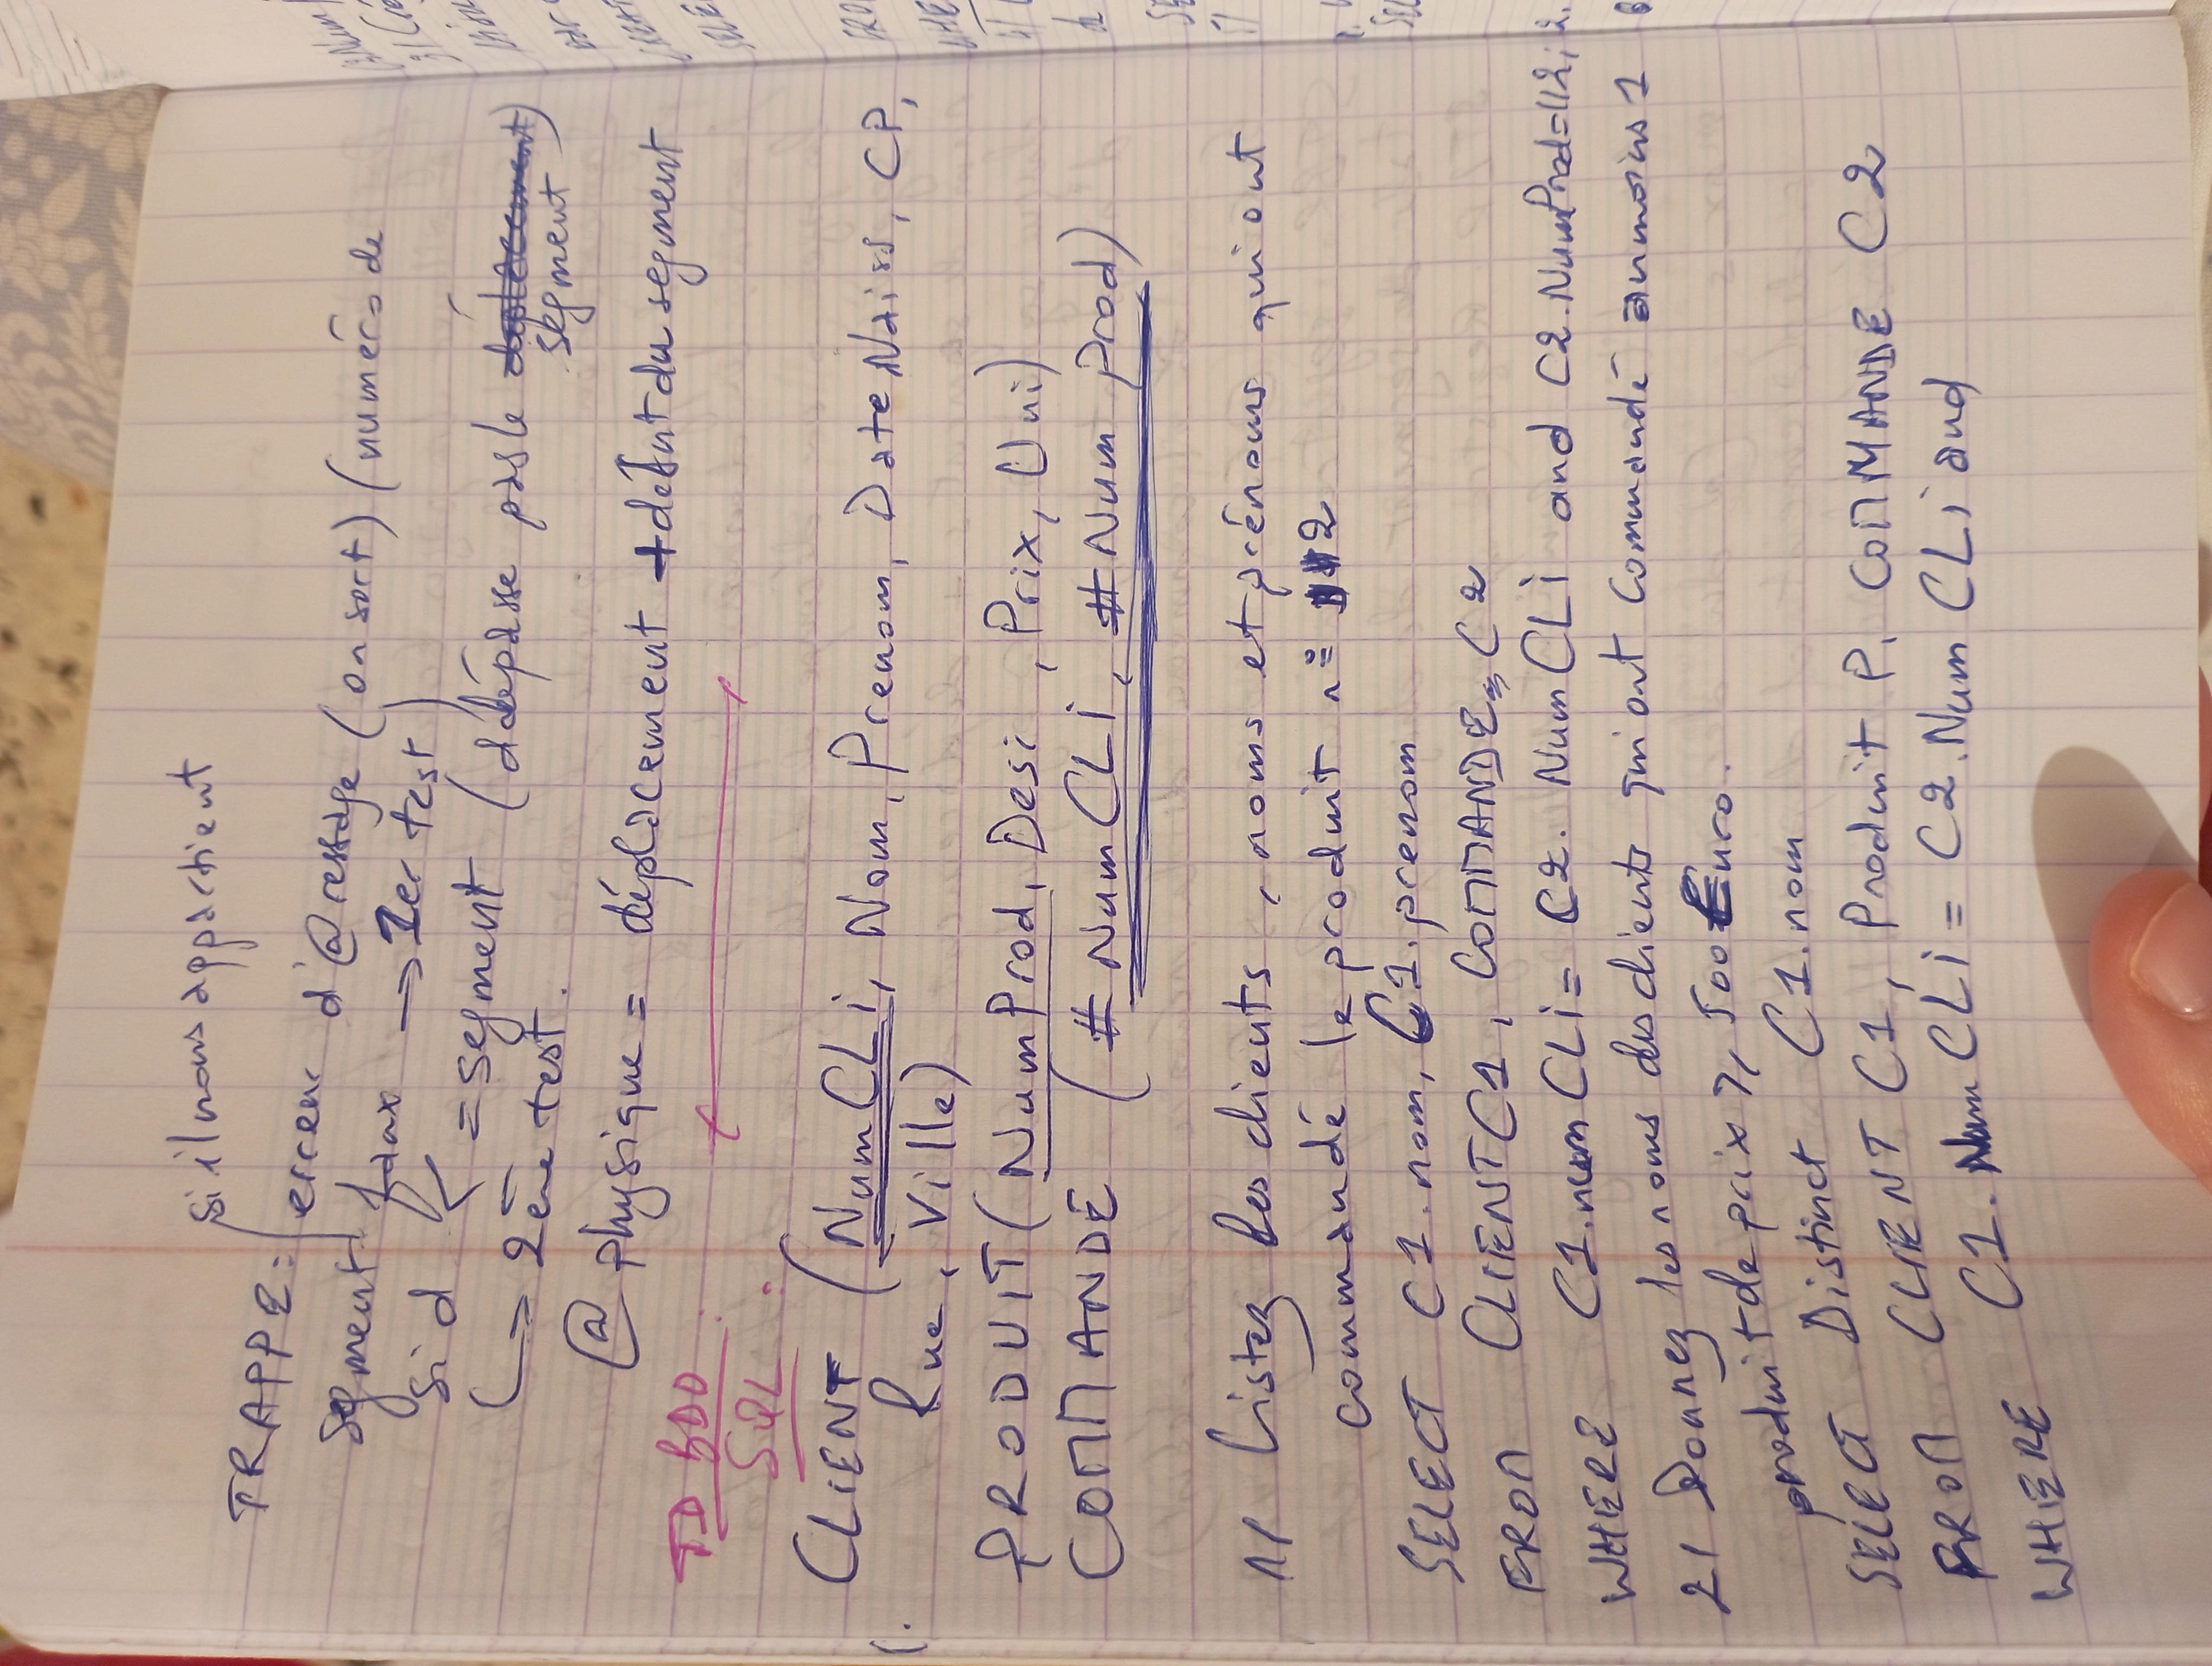 si il nous appartient
TRAPPE: erreur d'@ressage (on sort) (numéro de
segment faux → 1er test)
sid < = segment (débpasse pas le segment)
↳ 2ème test.
@ Physique = déplacement + début du segment
TD BDD:
SQL:
CLIENT (NumCLi, Nom, Prenom, DateNaiss, CP,
Rue, Ville)
PRODUIT (NumProd, Desi, Prix, Uni)
COMMANDE (#NumCLi, #NumProd)
1/ Listez les clients, noms et prénoms qui ont
commandé le produit n° 2
SELECT C1.nom, C1.prenom
FROM CLIENT C1, COMMANDE C2
WHERE C1.numCLi = C2.NumCLi and C2.NumProd=
2/ Donnez les noms des clients qui ont commandé au moins 1
produit de prix >, 500 Euro.
SELECT Distinct C1.nom
FROM CLIENT C1, Produit P, COMMANDE C2
WHERE C1.NumCLi = C2.NumCLi and